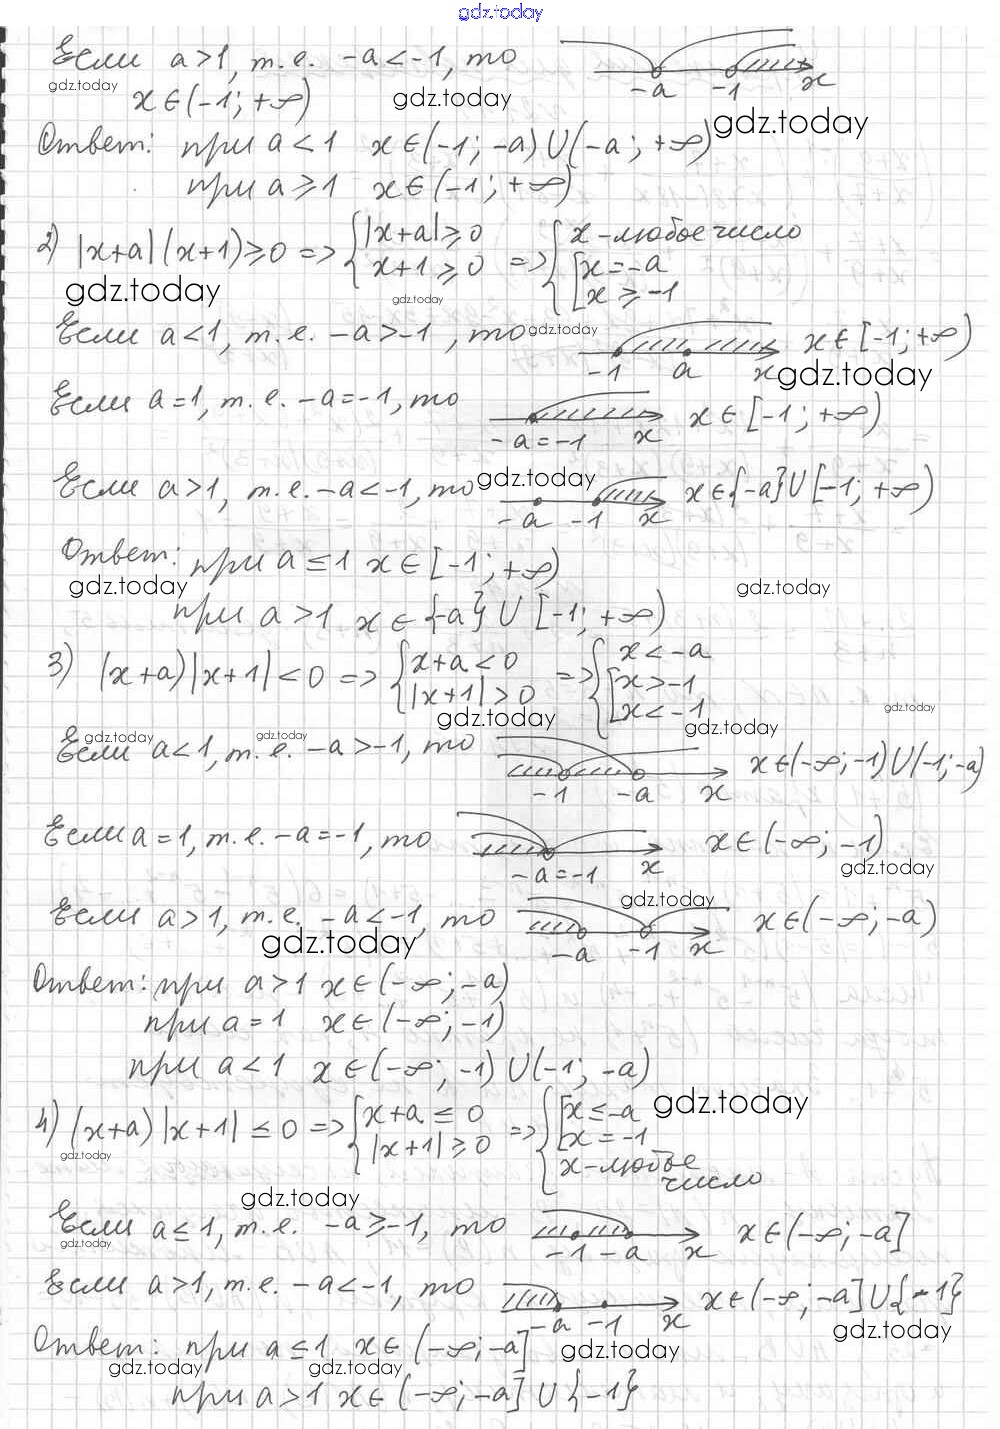 gdz.today
Если a>1, т.е. -a<-1, то -a -1 x
gdz.today
x∈(-1; +∞) gdz.today
gdz.today
Ответ: при a<1 x∈(-1; -a)∪(-a; +∞)
при a⩾1 x∈(-1; +∞)
2) |x+a|(x+1)⩾0 => { |x+a|⩾0 x+1⩾0 => { x-любое число [ x=-a x⩾-1
gdz.today gdz.today
Если a<1, т.е. -a>-1, то gdz.today -1 a x x∈[-1; +∞)
gdz.today
Если a=1, т.е. -a=-1, то -a=-1 x x∈[-1; +∞)
gdz.today
Если a>1, т.е. -a<-1, то -a -1 x x∈{-a}∪[-1; +∞)
Ответ: при a≤1 x∈[-1; +∞)
gdz.today gdz.today
при a>1 x∈{-a}∪[-1; +∞)
3) (x+a)|x+1|<0 => { x+a<0 |x+1|>0 => { x<-a [ x>-1 x<-1
gdz.today gdz.today gdz.today
gdz.today gdz.today
Если a<1, т.е. -a>-1, то -1 -a x x∈(-∞; -1)∪(-1; -a)
Если a=1, т.е. -a=-1, то -a=-1 x x∈(-∞; -1)
gdz.today
gdz.today
Если a>1, т.е. -a<-1, то -a -1 x x∈(-∞; -a)
gdz.today
Ответ: при a>1 x∈(-∞; -a)
при a=1 x∈(-∞; -1)
при a<1 x∈(-∞; -1)∪(-1; -a)
4) (x+a)|x+1|≤0 => { x+a≤0 |x+1|⩾0 => { [ x≤-a x=-1 x-любое число
gdz.today
gdz.today
gdz.today
Если a≤1, т.е. -a⩾-1, то -1 -a x x∈(-∞; -a]
gdz.today
Если a>1, т.е. -a<-1, то -a -1 x x∈(-∞; -a]∪{-1}
gdz.today
Ответ: при a≤1 x∈(-∞; -a]
gdz.today gdz.today gdz.today
при a>1 x∈(-∞; -a]∪{-1}